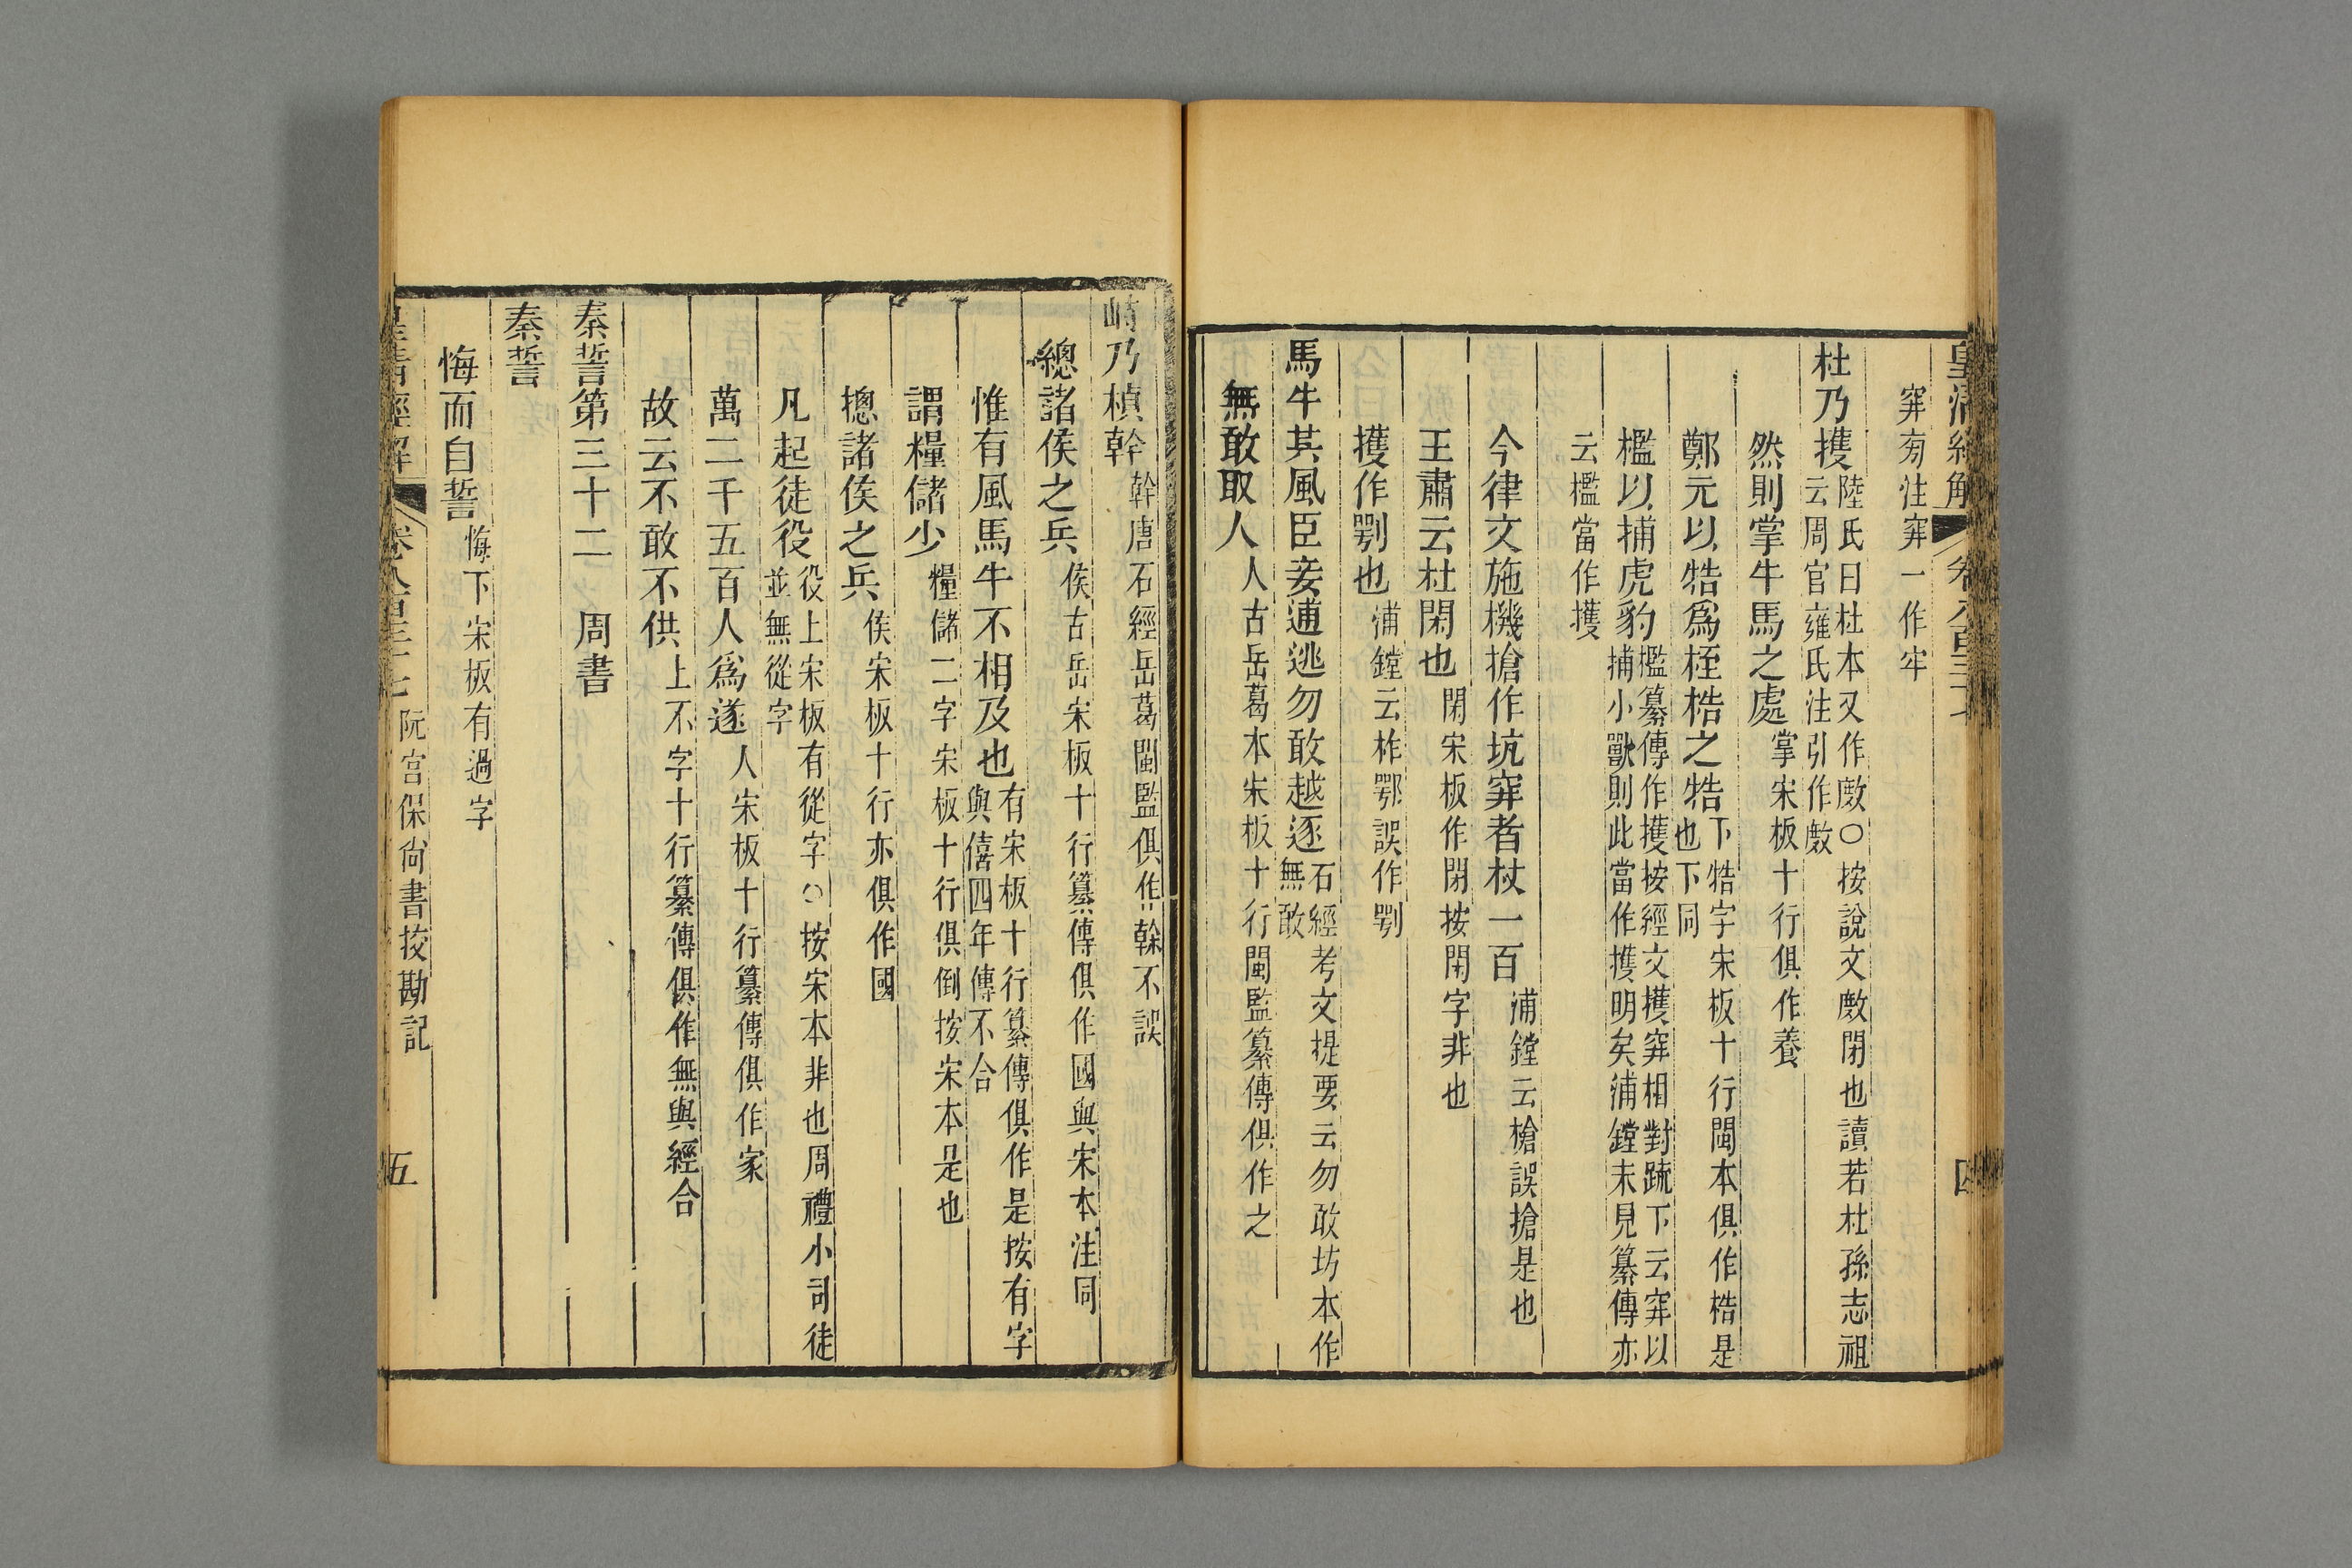 皇清經解 卷八百三十七 四
穽旁注穽一作牢
杜乃擭陸氏曰杜本又作𢾖○按說文𢾖閉也讀若杜孫志祖
云周官雍氏注引作𢾖
然則掌牛馬之處掌宋板十行俱作養
鄭元以牿爲桎梏之牿下牿字宋板十行閩本俱作梏是
也下同
檻以捕虎豹檻纂傳作擭按經文擭穽相對疏下云穽以
捕小獸則此當作擭明矣浦鏜未見纂傳亦
云檻當作擭
今律文施機搶作坑穽者杖一百浦鏜云槍誤搶是也
王肅云杜閑也閑宋板作閉按閑字非也
擭作㓵也浦鏜云柞鄂誤作㓵
馬牛其風臣妾逋逃勿敢越逐石經考文提要云勿敢坊本作
無敢
無敢取人人古岳葛本宋板十行閩監纂傳俱作之
峙乃楨幹幹唐石經岳葛閩監俱作榦不誤
總諸侯之兵侯古岳宋板十行纂傳俱作國與宋本注同
惟有風馬牛不相及也有宋板十行纂傳俱作是按有字
與僖四年傳不合
謂糧儲少糧儲二字宋板十行俱倒按宋本是也
摠諸侯之兵侯宋板十行亦俱作國
凡起徒役役上宋板有從字○按宋本非也周禮小司徒
並無從字
萬二千五百人爲遂人宋板十行纂傳俱作家
故云不敢不供上不字十行纂傳俱作無與經合
秦誓第三十二 周書
秦誓
悔而自誓悔下宋板有過字
皇清經解 卷八百三十七 阮宮保尙書挍勘記 五